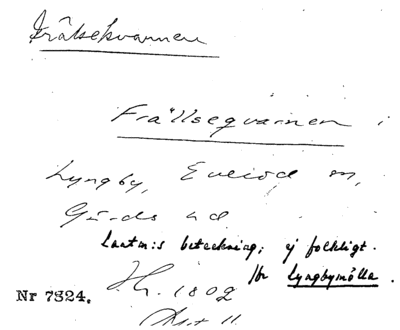 Frälsekvarnen
Frällseqvarnen i
Lyngby, Everöd sn,
Gärds hd
Lantm:s beteckning; ej folkligt.
Jfr Lyngbymölla.
Nr 7324. 1802
Akt 11